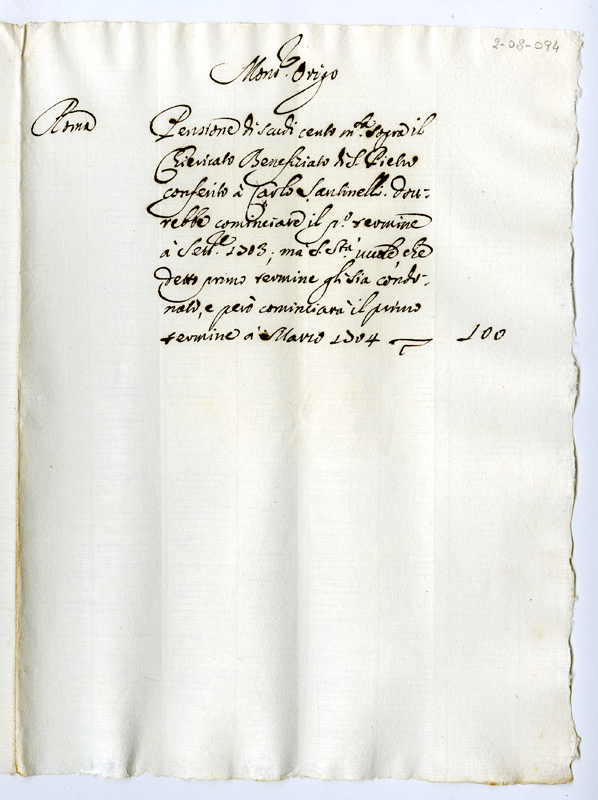 2-08-094
Mons.r Origo
Roma
Pensione di scudi cento m.ta sopra il
Chiericato Benefiziato di S. Pietro
conferito à Carlo Santinelli. dou-
rebbe cominciare il p.o termine
à Sett.re 1703, ma S. S.tà uuole, che
detto primo termine gli sia condo-
nato, e però cominciarà il primo
termine à Marzo 1704
100